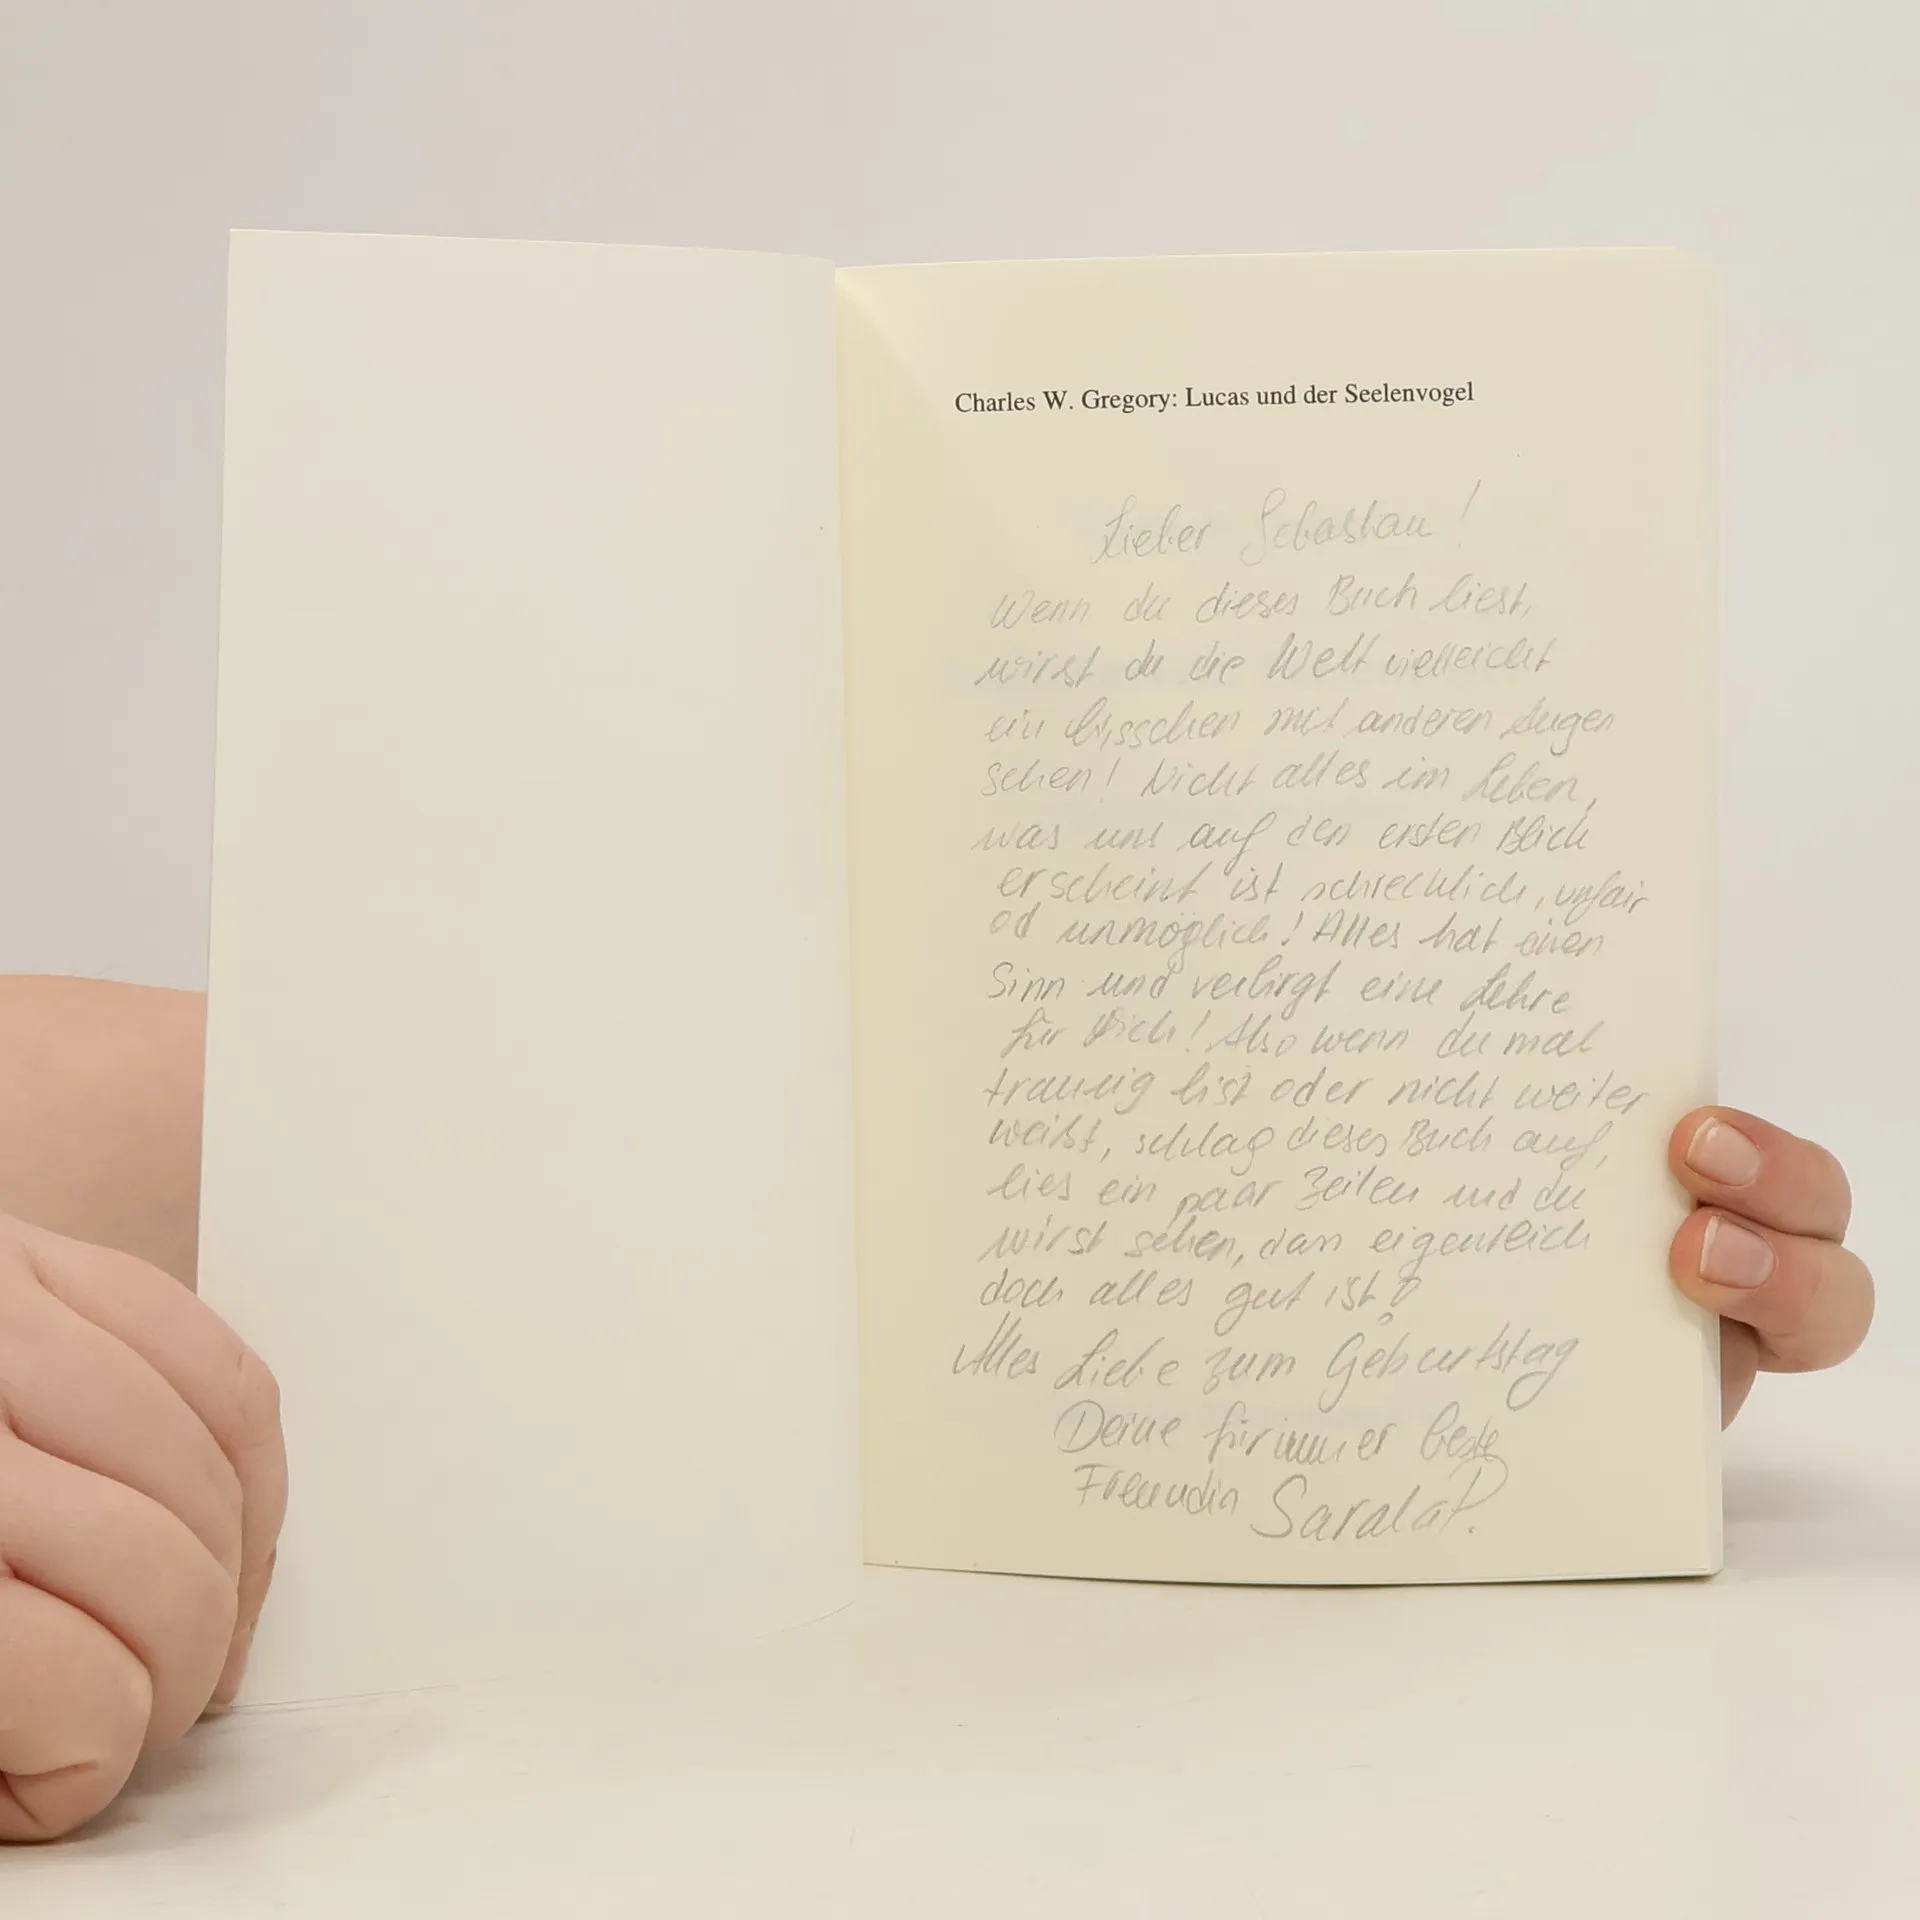 Charles W. Gregory: Lucas und der Seelenvogel
Lieber Sebastian!
Wenn du dieses Buch liest,
wirst du die Welt vielleicht
ein bisschen mit anderen Augen
sehen! Nicht alles im Leben,
was uns auf den ersten Blick
erscheint ist schrecklich, unfair
od unmöglich! Alles hat einen
Sinn und verbirgt eine Lehre
für Dich! Also wenn du mal
traurig bist oder nicht weiter
weißt, schlag dieses Buch auf,
lies ein paar Zeilen und du
wirst sehen, dass eigentlich
doch alles gut ist!
Alles Liebe zum Geburtstag
Deine für immer beste
Freundin